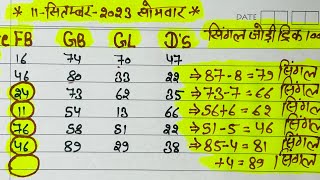 * 11-सितम्बर-2023 सोमवार *
DATE
FB GB GL D's सिंगल जोड़ी ट्रिक 100
16 74 70 47
46 80 33 22 ⇒87-8=79 सिंगल
24 73 62 35 ⇒73-7=66 सिंगल
11 54 13 66 ⇒56+6=62 सिंगल
76 58 81 22 ⇒51-5=46 सिंगल
46 89 29 38 ⇒85-4=81 सिंगल
+4=89 सिंगल